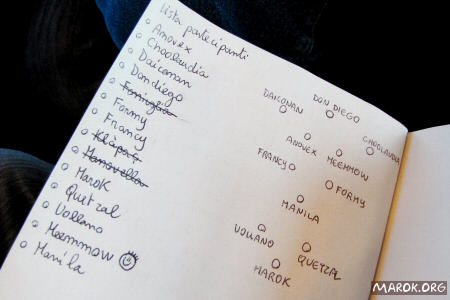 Lista partecipanti
Amovex
Choolaudia
Daiconan
Dondiego
Formy
Francy
Klàpaç
Manovella
Marok
Quetzal
Vollano
Meemmow
Manila
DAICONAN
DON DIEGO
CHOOLAUDIA
ANOVEX
MEEMMOW
FRANCY
FORMY
MANILA
VOLLANO
QUETZAL
MAROK
MAROK.ORG